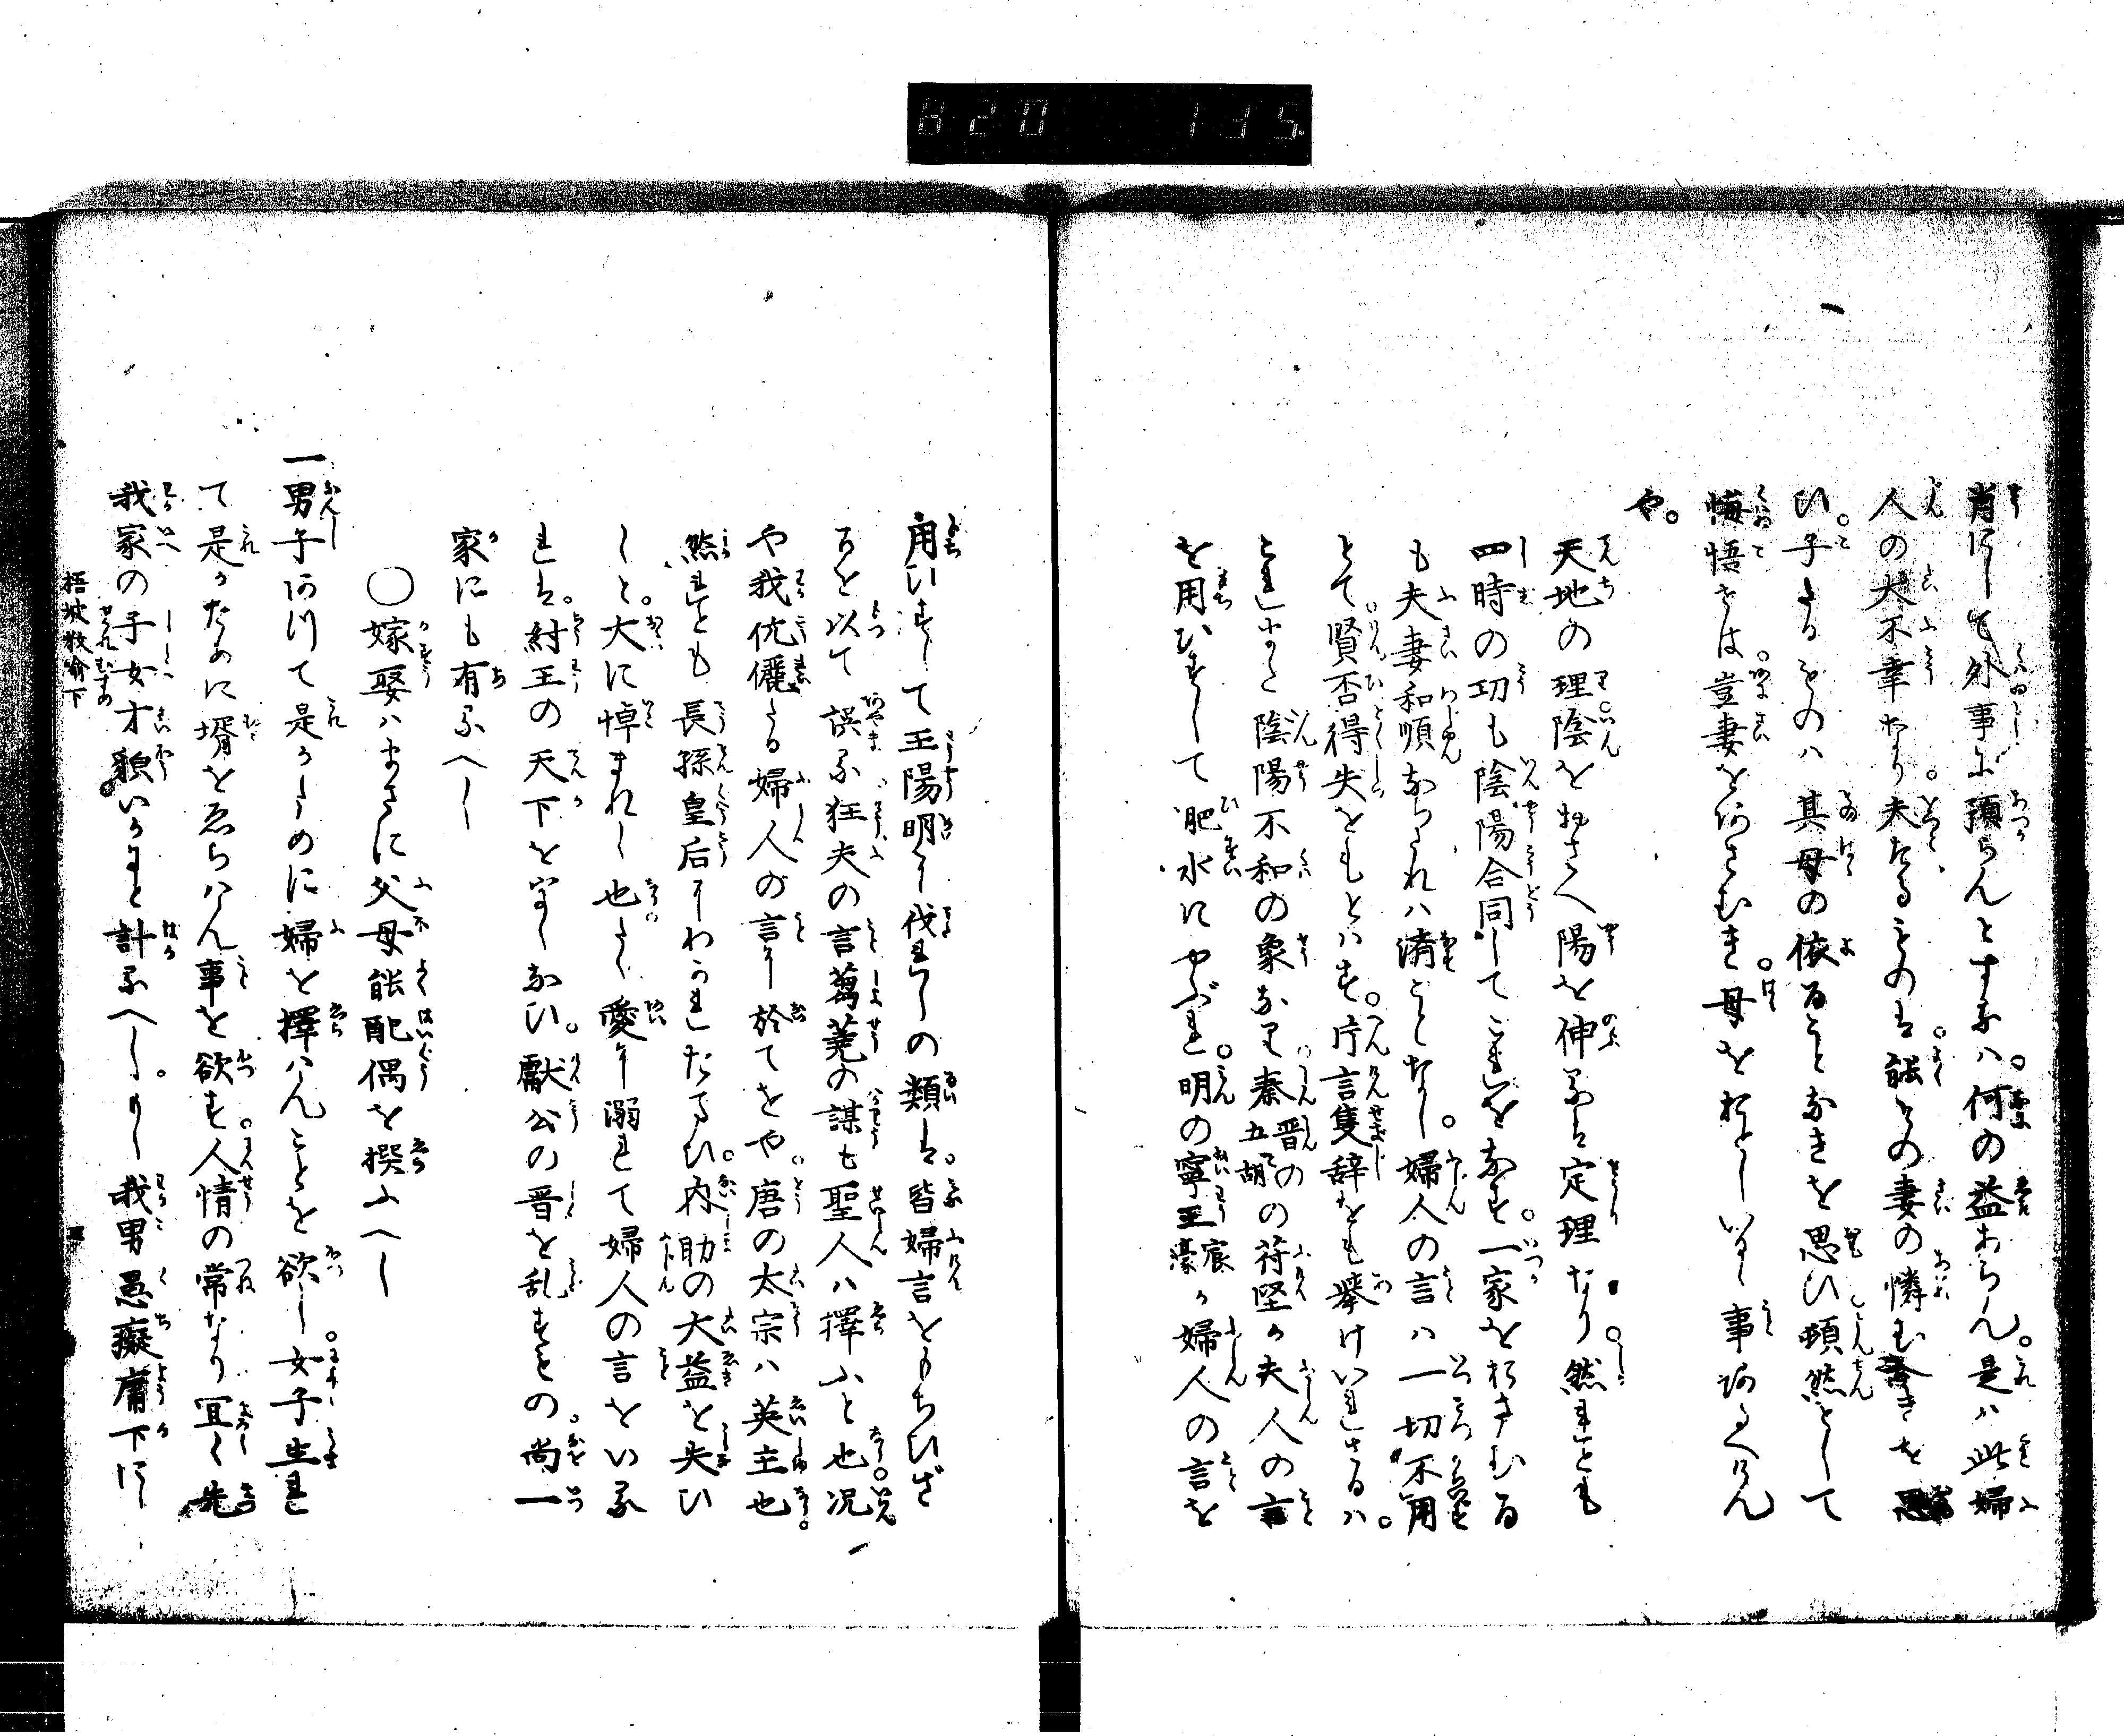 820 115
肖にして外事に預らんとするハ。何の益あらん。是ハ此婦
人の大不幸なり夫たるものは。能其の妻の憐むべきを思
ひ。子たるものハ其母の依るところなきを思ひ頓然として
悔悟せは豈妻をあさむき。母をおとしいるゝ事あらん
や。
天地の理陰をおさへ陽を伸るは定理なり。然れとも
四時の功も陰陽合同してこれをなす。一家をおさむる
も夫妻和順ならされハ済ことなし。婦人の言ハ一切不用
とて賢否得失をもとハす。片言隻辞をも挙けいれさるハ。
これまた陰陽不和の象なり秦晋の五胡の符堅か夫人の言
を用ひすして肥水にやぶれ。明の寧王宸濠か婦人の言を
用ひすして王陽明に伐れしの類は。皆婦言をもちひざ
るを以て誤る狂夫の言蒭蕘の謀も聖人ハ擇ふと也況
や我伉儷たる婦人の言に於てをや。唐の太宗ハ英主也
然れとも長孫皇后にわかれたまひ。内助の大益を失ひ
しと。大に悼まれし也たゝ愛に溺れて婦人の言をいる
れは。紂王の天下を失しなひ。献公の晋を乱すもの尚一
家にも有るへし
〇嫁娶ハまさに父母能配偶を撰ふへし
一男子ありて是かために婦を擇ハんことを欲し。女子生れ
て是かために壻をゑらハん事を欲す。人情の常なり宜く先
我家の子女才貌いかにと計るへし。もし我男愚癡庸下にし
梧坡教喩下